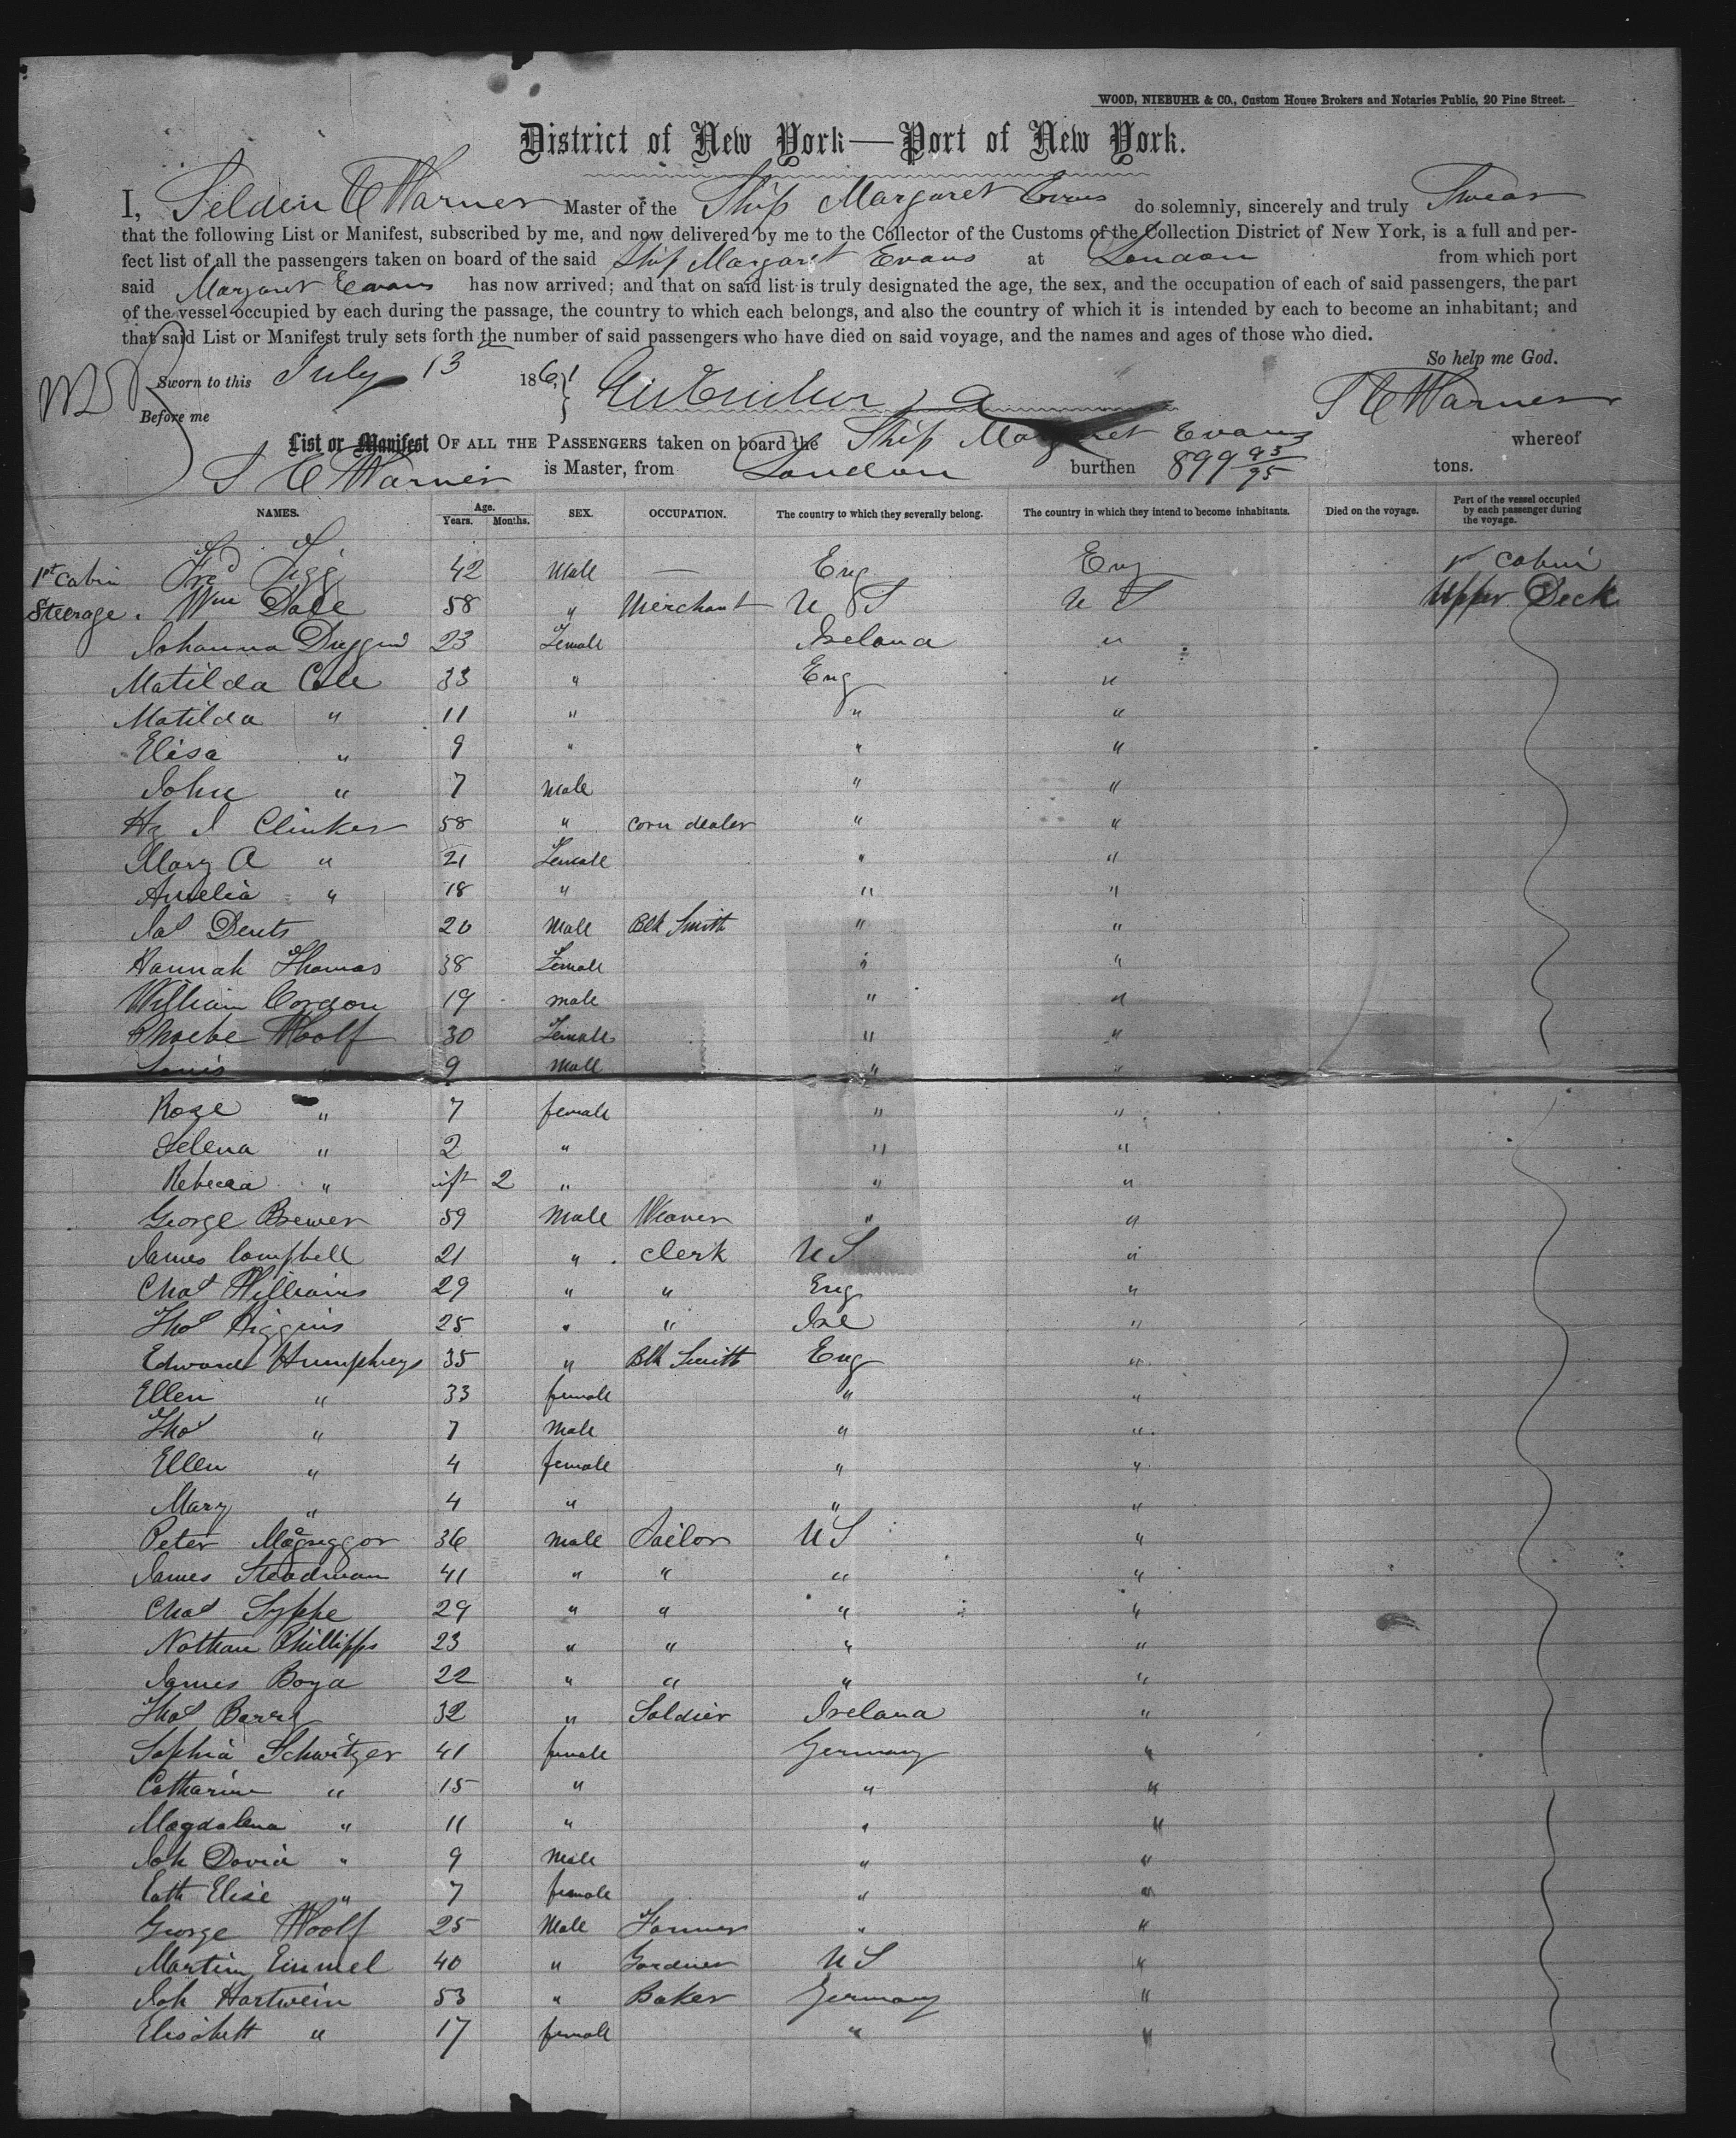 WOOD, NIEBUHR & CO., Custom House Brokers and Notaries Public, 20 Pine Street.
District of New York—Port of New York.
I, Selden C Warner Master of the Ship Margaret Evans do solemnly, sincerely and truly Swear
that the following List or Manifest, subscribed by me, and now delivered by me to the Collector of the Customs of the Collection District of New York, is a full and per-
fect list of all the passengers taken on board of the said Ship Margaret Evans at London from which port
said Margaret Evans has now arrived; and that on said list is truly designated the age, the sex, and the occupation of each of said passengers, the part
of the vessel occupied by each during the passage, the country to which each belongs, and also the country of which it is intended by each to become an inhabitant; and
that said List or Manifest truly sets forth the number of said passengers who have died on said voyage, and the names and ages of those who died.
So help me God.
Sworn to this July 13 1861
Before me
S C Warner
List or Manifest OF ALL THE PASSENGERS taken on board the Ship Margaret Evans whereof
S C Warner is Master, from London burthen 899 93/95 tons.
NAMES. Age. Years. Months. SEX. OCCUPATION. The country to which they severally belong. The country in which they intend to become inhabitants. Died on the voyage. Part of the vessel occupied by each passenger during the voyage.
1st Cabin Fred Figg 42 Male — Eng Eng Cabin
Steerage. Wm Dale 58 " Merchant U S U S Upper Deck
Johanna Duggin 23 Female Ireland "
Matilda Cole 33 " Eng "
Matilda " 11 " " "
Elisa " 9 " " "
John " 7 Male " "
Hy J Clinker 58 " corn dealer " "
Mary A " 21 Female " "
Amelia " 18 " " "
Jas Dents 20 Male Blk Smith " "
Hannah Thomas 38 Female " "
William Cordon 19 male " "
Phoebe Woolf 30 Female " "
Louis " 9 Male " "
Roze " 7 female " "
Selena " 2 " " "
Rebecca " inft 2 " " "
George Brewer 59 Male Weaver " "
James Campbell 21 " Clerk U S "
Chas Williams 29 " " Eng "
Thos Higgins 25 " " Ire "
Edward Humphreys 35 " Blk Smith Eng "
Ellen " 33 female " "
Thos " 7 Male " "
Ellen " 4 female " "
Mary " 4 " " "
Peter McGreggor 36 Male Sailor U S "
James Steadman 41 " " " "
Chas Syphe 29 " " " "
Nathan Phillipps 23 " " " "
James Boyd 22 " " " "
Thos Barry 32 " Soldier Ireland "
Sophia Schwitzer 41 female Germany "
Catharine " 15 " " "
Magdalena " 11 " " "
Joh David " 9 Male " "
Cath Elise " 7 female " "
George Woolf 25 Male Farmer " "
Martin Emmel 40 " Gardner U S "
Joh Hartwein 53 " Baker Germany "
Elisabett " 17 female " "